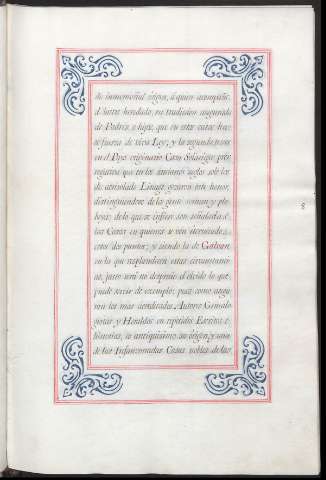 de inmemorial origen, a quien acompañe,
el lustre heredado, en tradicion asegurada
de Padres a hijos, que en estos casos ha-
ze fuerza de viva Ley; y la segunda tener
en el Pays originario Casa Solariega, pre-
rogativa que en los ancianos siglos solo los
de acrisolado Linage gozaron este honor,
distinguiendose de las gentes comun y ple-
beya; de lo que se infiere son señaladas
las Casas en quienes se vén executoriados
estos dos puntos; y siendo la de
en la que resplandecen estas circunstanci-
as, justo será no desprecie el olvido lo que
puede servir de exemplo; pues como asegu-
ran los mas acreditados Autores Genealo-
gistas y Heraldos en repetidos Escritos e
historias, es antiquissimo su origen, y una
de las Infanzonadas Casas nobles de las